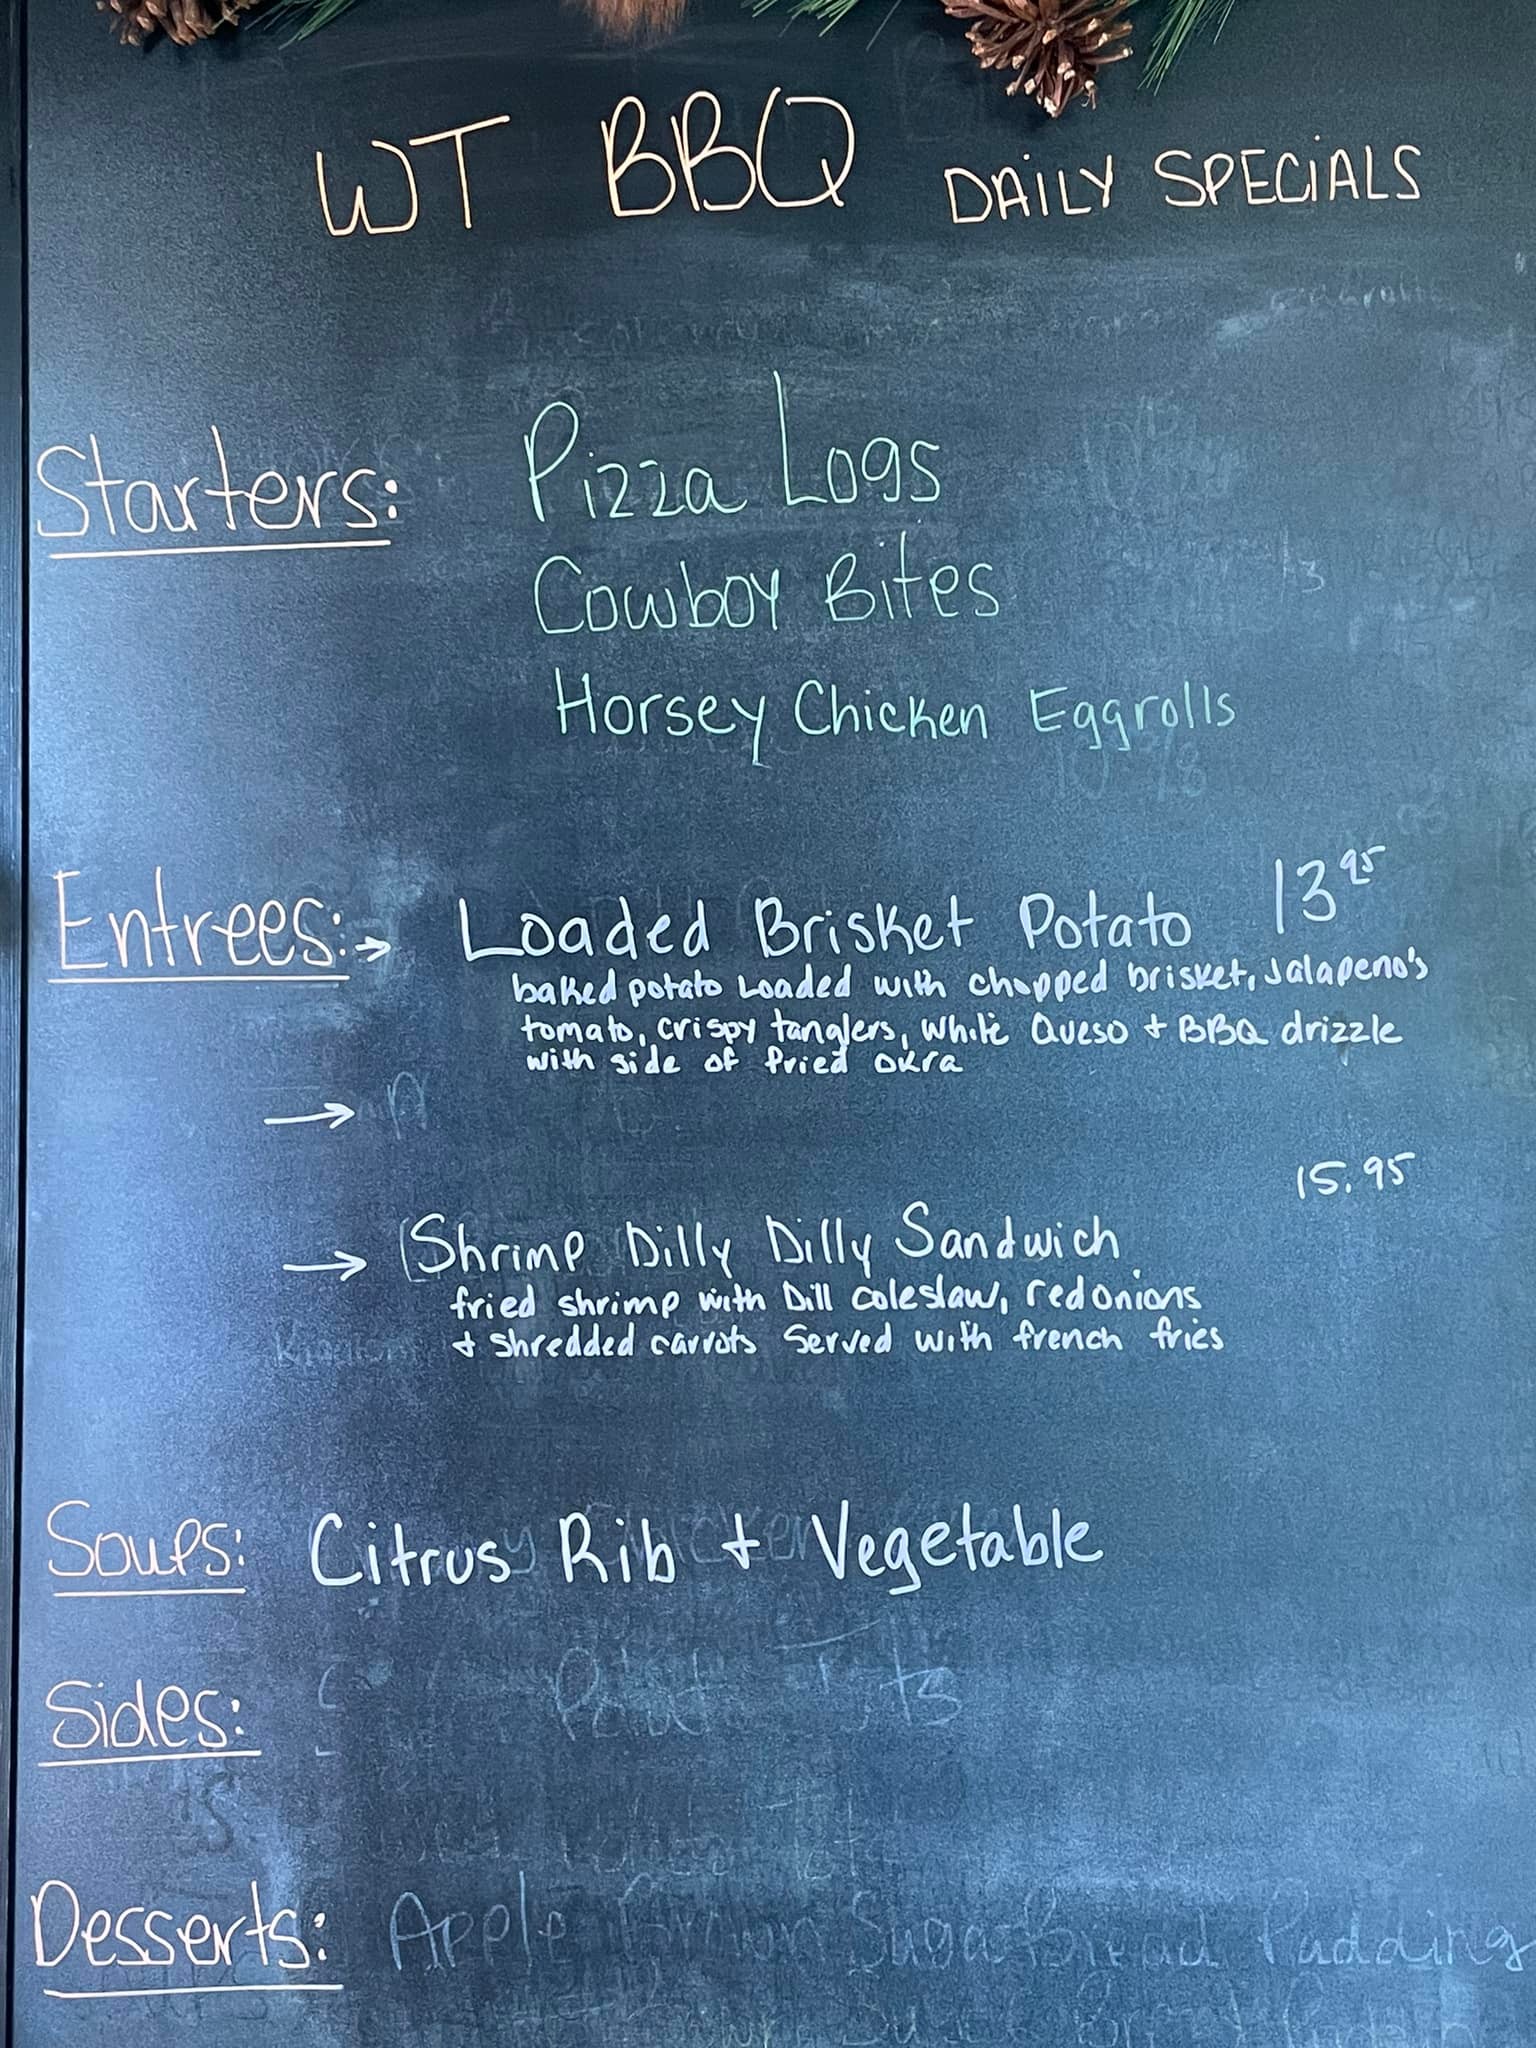 WT BBQ DAILY SPECIALS
Starters: Pizza Logs
Cowboy Bites
Horsey Chicken Eggrolls
Entrees: → Loaded Brisket Potato 13 95
baked potato Loaded with chopped brisket, Jalapeno's
tomato, crispy tanglers, White Queso + BBQ drizzle
with side of fried okra
→
15.95
→ Shrimp Dilly Dilly Sandwich
fried shrimp with Dill coleslaw, red onions
+ shredded carrots Served with french fries
Soups: Citrus Rib + Vegetable
Sides:
Desserts: Apple Sugar Bread Pudding